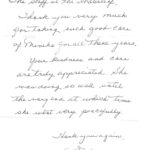 The Staff at the
Thank you very much
for taking such good care
of all these years.
Your kindness and care
are truly appreciated. She
was doing so well until
the very end at which time
she went very peacefully.
Thank you again,